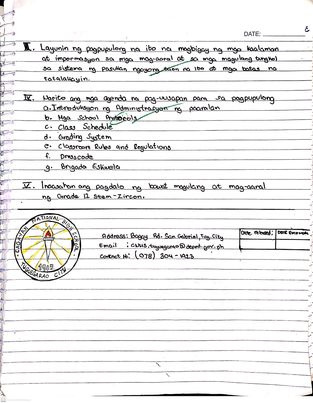 DATE:
III. Layunin ng pagpupulong na ito na magbigay ng mga kaalaman
at impormasyon sa mga mag-aaral at sa mga magulang tungkol
sa sistema ng pasukan ngayong taon na ito at mga batas na
tatalakayin.
IV. Narito ang mga agenda na pag-uusapan para sa pagpupulong
a. Introduksyon ng Administrasyon ng paaralan
b. Mga School Protocols
c. Class Schedule
d. Grading System
e. Classroom Rules and Regulations
f. Dresscode
g. Brigada Eskwela
V. Inaasahan ang pagdalo ng bawat magulang at mag-aaral
ng Grade 12 Stem - Zircon.
CAGAYAN NATIONAL HIGH SCHOOL
TUGUEGARAO CITY
Address: Bagay Rd. San Gabriel, Tug. City
Email :
Contact No: (078) 304-